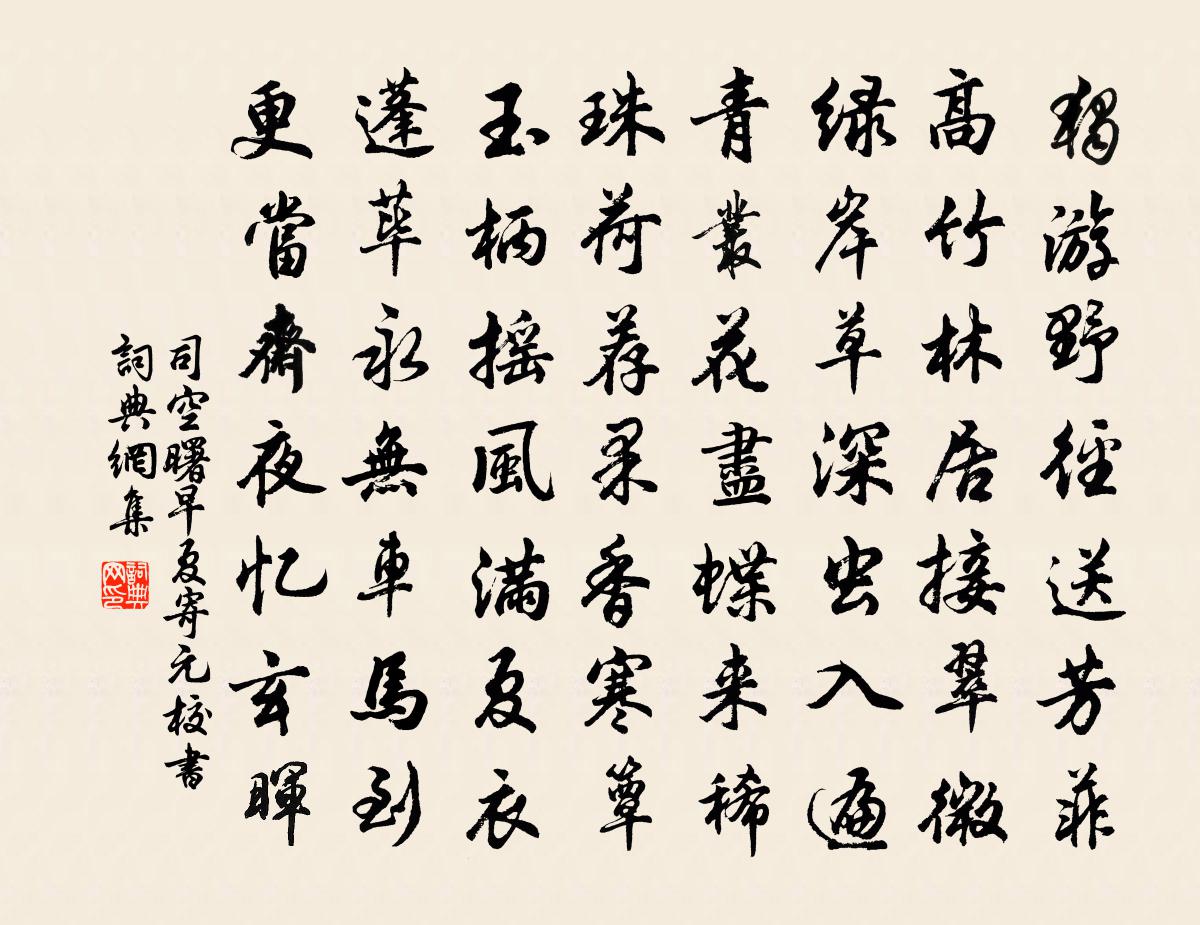 獨游野徑送芳菲
高竹林居接翠微
緑岸草深虫入遍
青叢花盡蝶来稀
珠荷荐果香寒簟
玉柄摇風滿夏衣
蓬荜永無車馬到
更當齋夜忆玄暉
司空曙早夏寄元校書
詞典網集
詞典网印